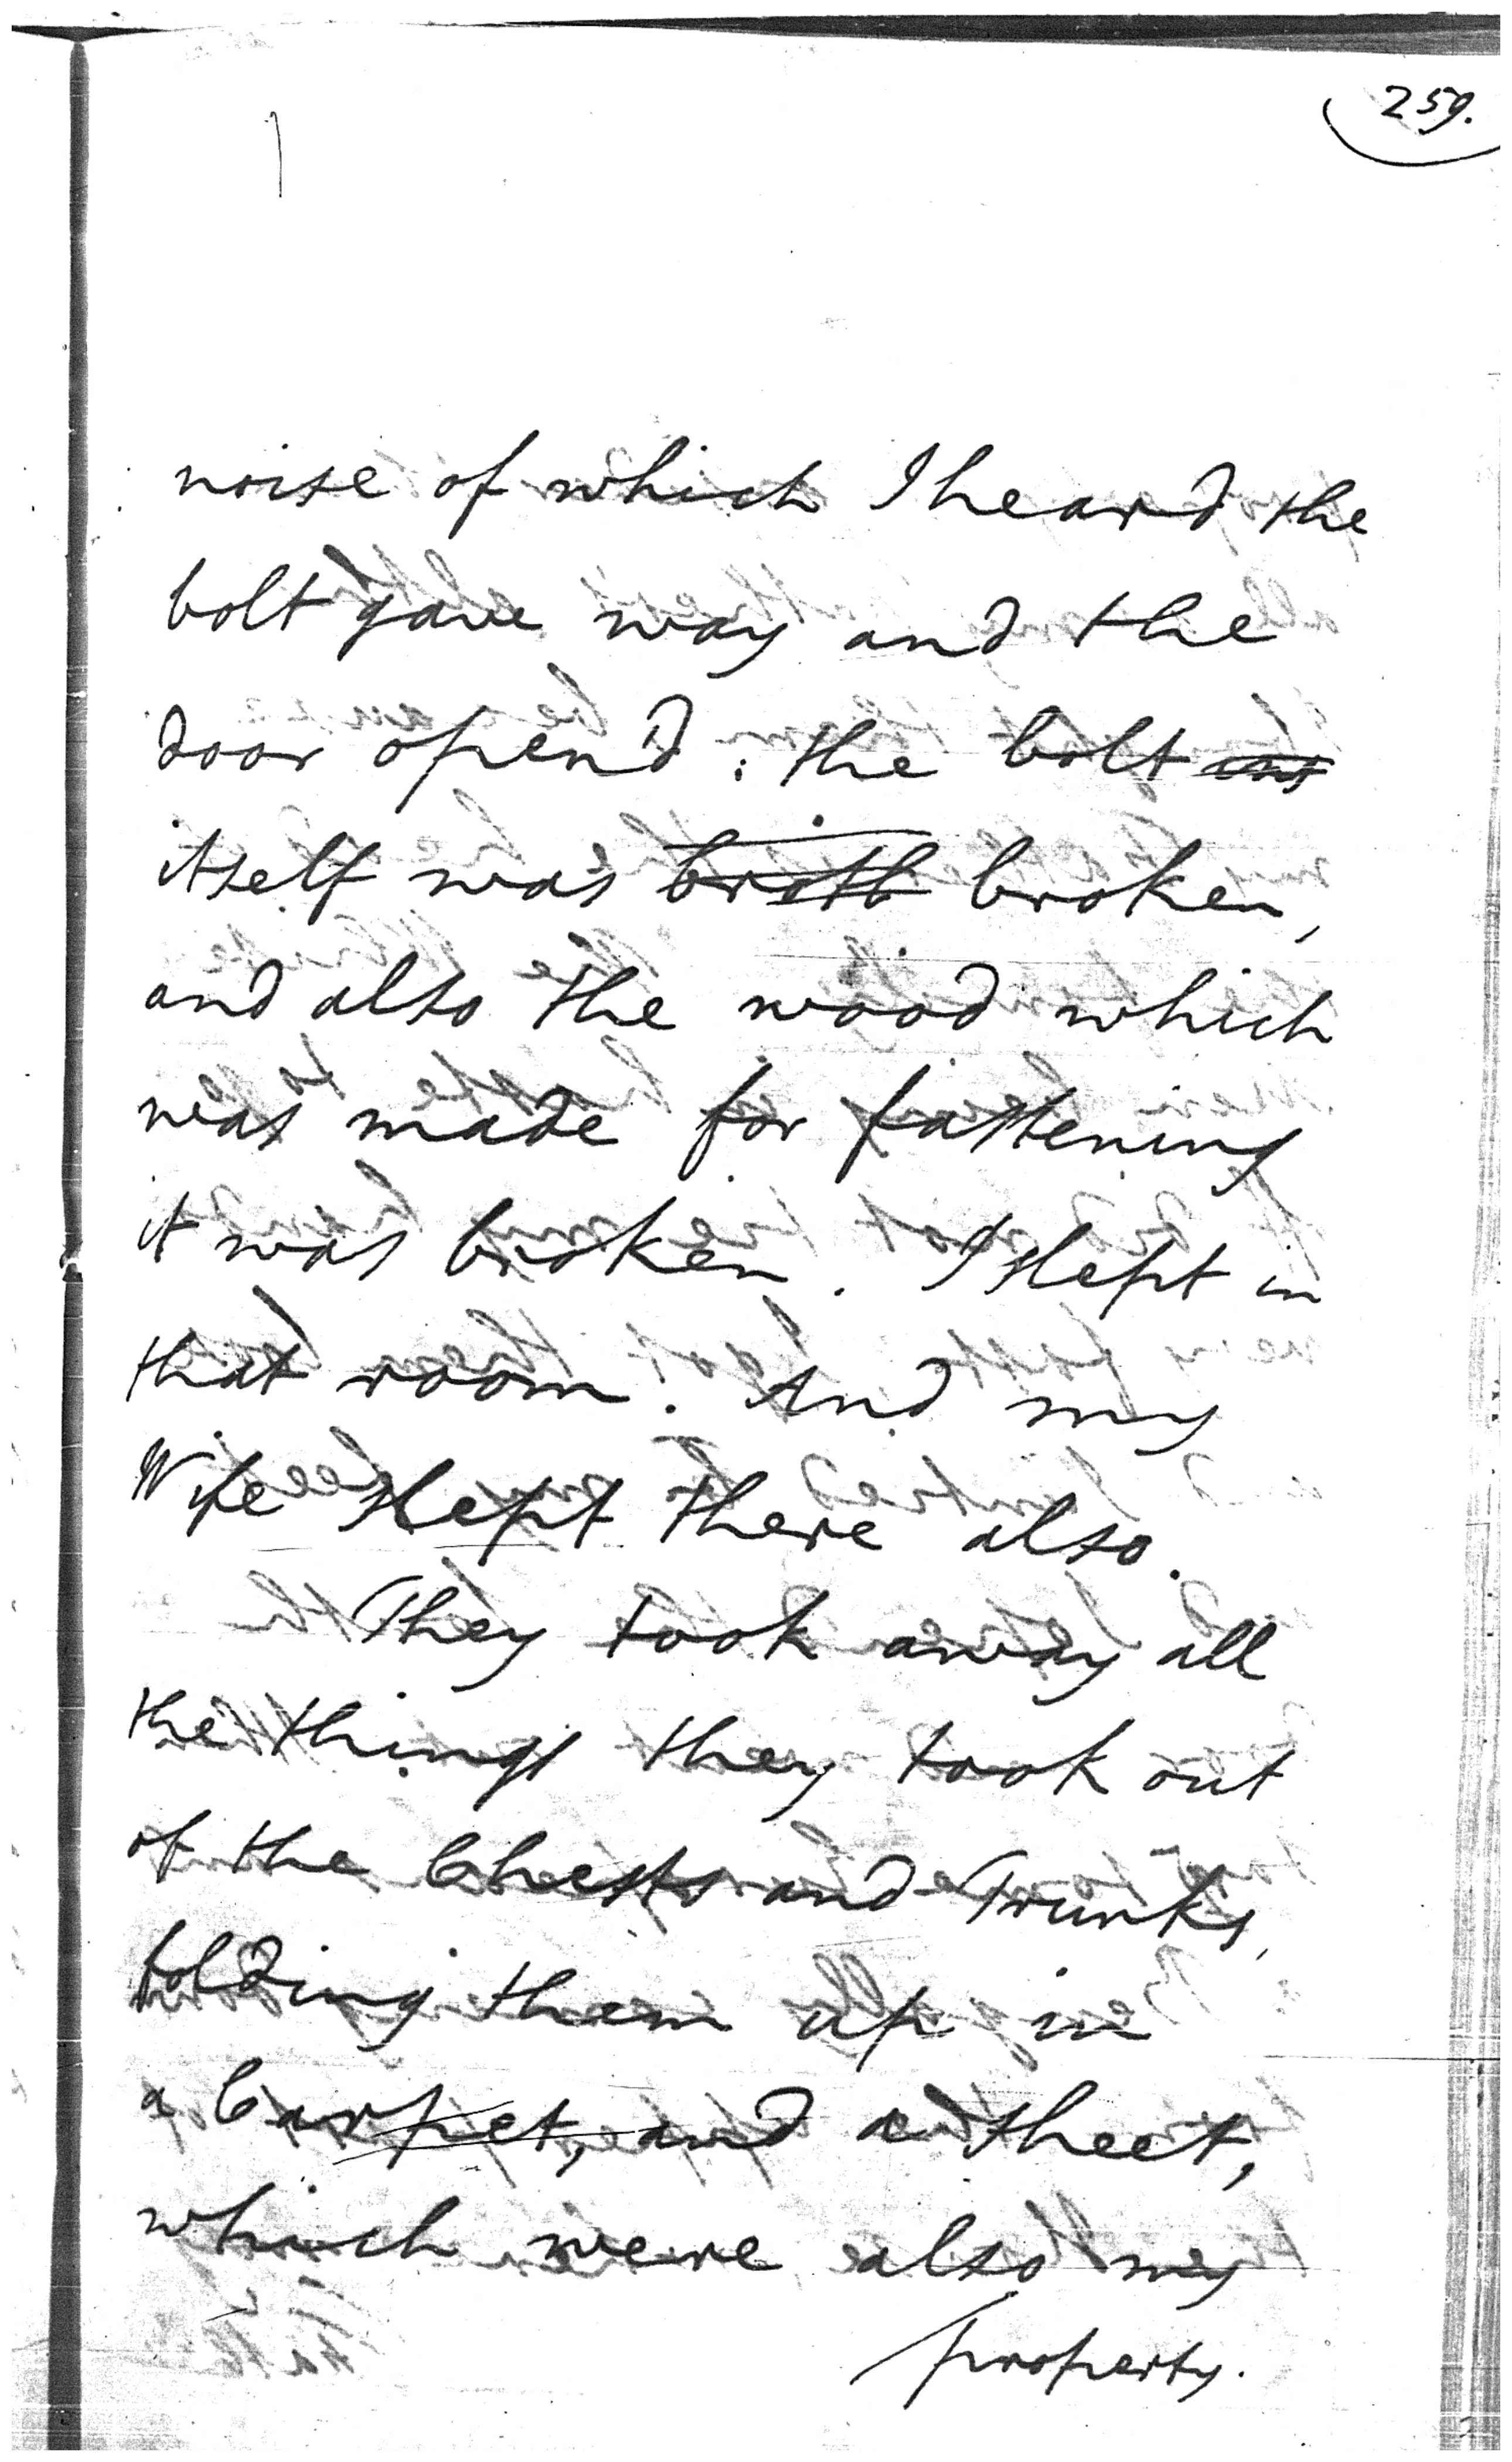 259.
noise of which I heard the
bolt gave way and the
door open'd. the bolt
itself was broken,
and also the wood which
was made for fastening
it was broken. I slept in
that room. And my
Wife slept there also.
They took away all
the things they took out
of the Chests and Trunks,
folding them up in
a Carpet, and a sheet,
which were also my
property.